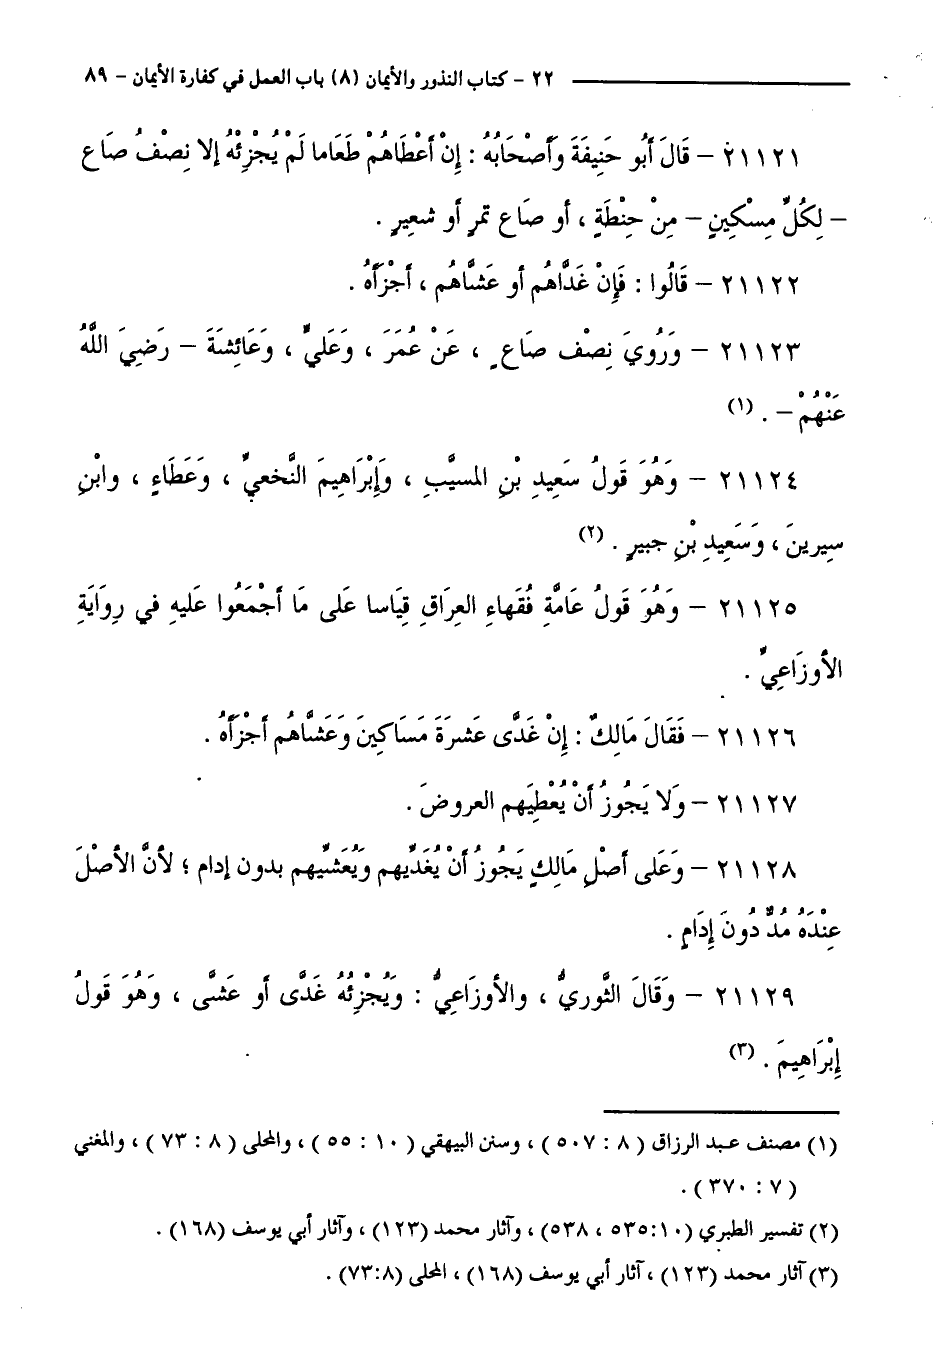 ٢٢ - كتاب النذور والأيمان (٨) باب العمل في كفارة الأيمان - ٨٩
٢١١٢١ - قَالَ أَبُو حَنِيفَةَ وَأَصْحَابُهُ : إِنْ أَعْطَاهُمْ طَعَاما لَمْ يُجْزِئْهُ إلا نِصْفُ صَاع
- لِكُلِّ مِسْكِينٍ - مِنْ حِنْطَةٍ ، أو صَاع تمرٍ أو شعيرٍ .
٢١١٢٢ - قَالُوا : فَإِنْ غَدَّاهُم أو عَشَّاهُم ، أجْزَأهُ .
٢١١٢٣ - وَرُويَ نِصْف صاعٍ ، عَنْ عُمَرَ ، وَعَليٍّ ، وَعَائِشَةَ - رَضِيَ اللَّهُ
عَنْهُمْ - . (١)
٢١١٢٤ - وَهُوَ قَولُ سَعِيدِ بْنِ المسيَّبِ ، وَإِبْرَاهِيمَ النَّخعيِّ ، وَعَطَاءٍ ، وابْنِ
سيرينَ ، وَسَعِيدِ بْنِ جبيرٍ . (٢)
٢١١٢٥ - وَهُوَ قَولُ عَامَّةِ فُقَهاءِ العِرَاقِ قِيَاسا عَلى مَا أجْمَعُوا عَليهِ في رِوَايَةِ
الأوزَاعِيِّ .
٢١١٢٦ - فَقَالَ مَالِكٌ : إِنْ غَدَّى عَشرَةَ مَسَاكِينَ وَعَشَّاهُم أجْزَأهُ .
٢١١٢٧ - وَلا يَجُوزُ أنْ يُعْطِيَهم العروضَ .
٢١١٢٨ - وَعَلى أصْلِ مَالِكٍ يَجُوزُ أنْ يُغَدِّيهم ويُعَشِّيهم بدون إدام ؛ لأنَّ الأصْلَ
عِنْدَهُ مُدٌّ دُونَ إِدَامٍ .
٢١١٢٩ - وَقَالَ الثَّوريُّ ، والأوزَاعِيُّ : وَيُجْزِئُهُ غَدَّى أو عَشَّى ، وَهُوَ قَولُ
إِبْرَاهِيمَ . (٣)
(١) مصنف عبد الرزاق ( ٨ : ٥٠٧ ) ، وسنن البيهقي ( ١٠ : ٥٥ ) ، والمحلى ( ٨ : ٧٣ ) ، والمغني
( ٧ : ٣٧٠ ) .
(٢) تفسير الطبري (١٠:٥٣٥ ، ٥٣٨) ، وآثار محمد (١٢٣) ، وآثار أبي يوسف (١٦٨) .
(٣) آثار محمد (١٢٣) ، آثار أبي يوسف (١٦٨) ، المحلى (٧٣:٨) .